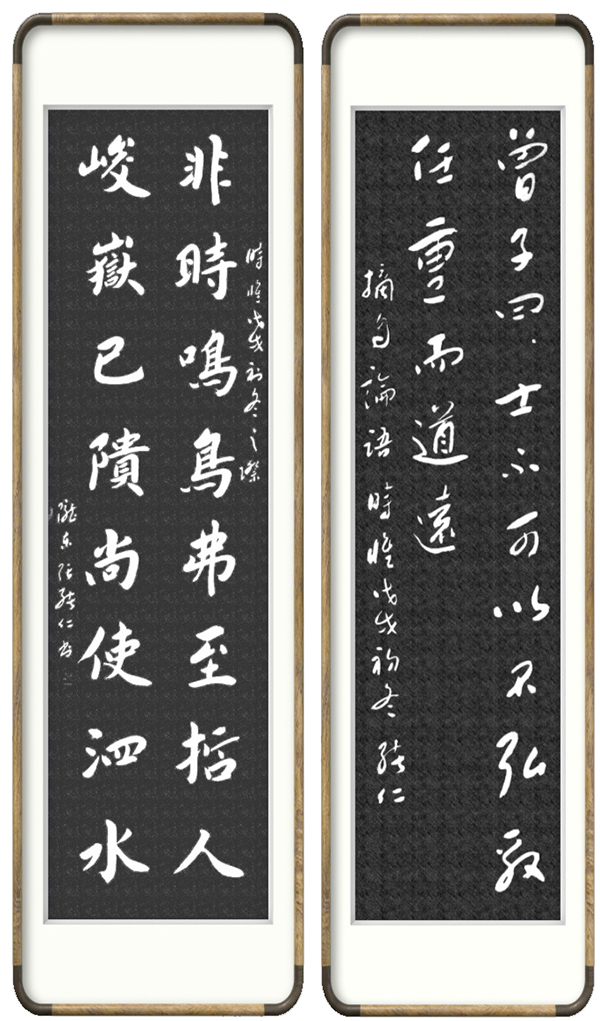 曾子曰、士不可以不弘毅
任重而道遠
摘句論語 時惟戊戌初冬 仁
時惟戊戌初冬之際
非時鳴鳥弗至哲人
峻嶽已隤尚使泗水
隴東張仁書